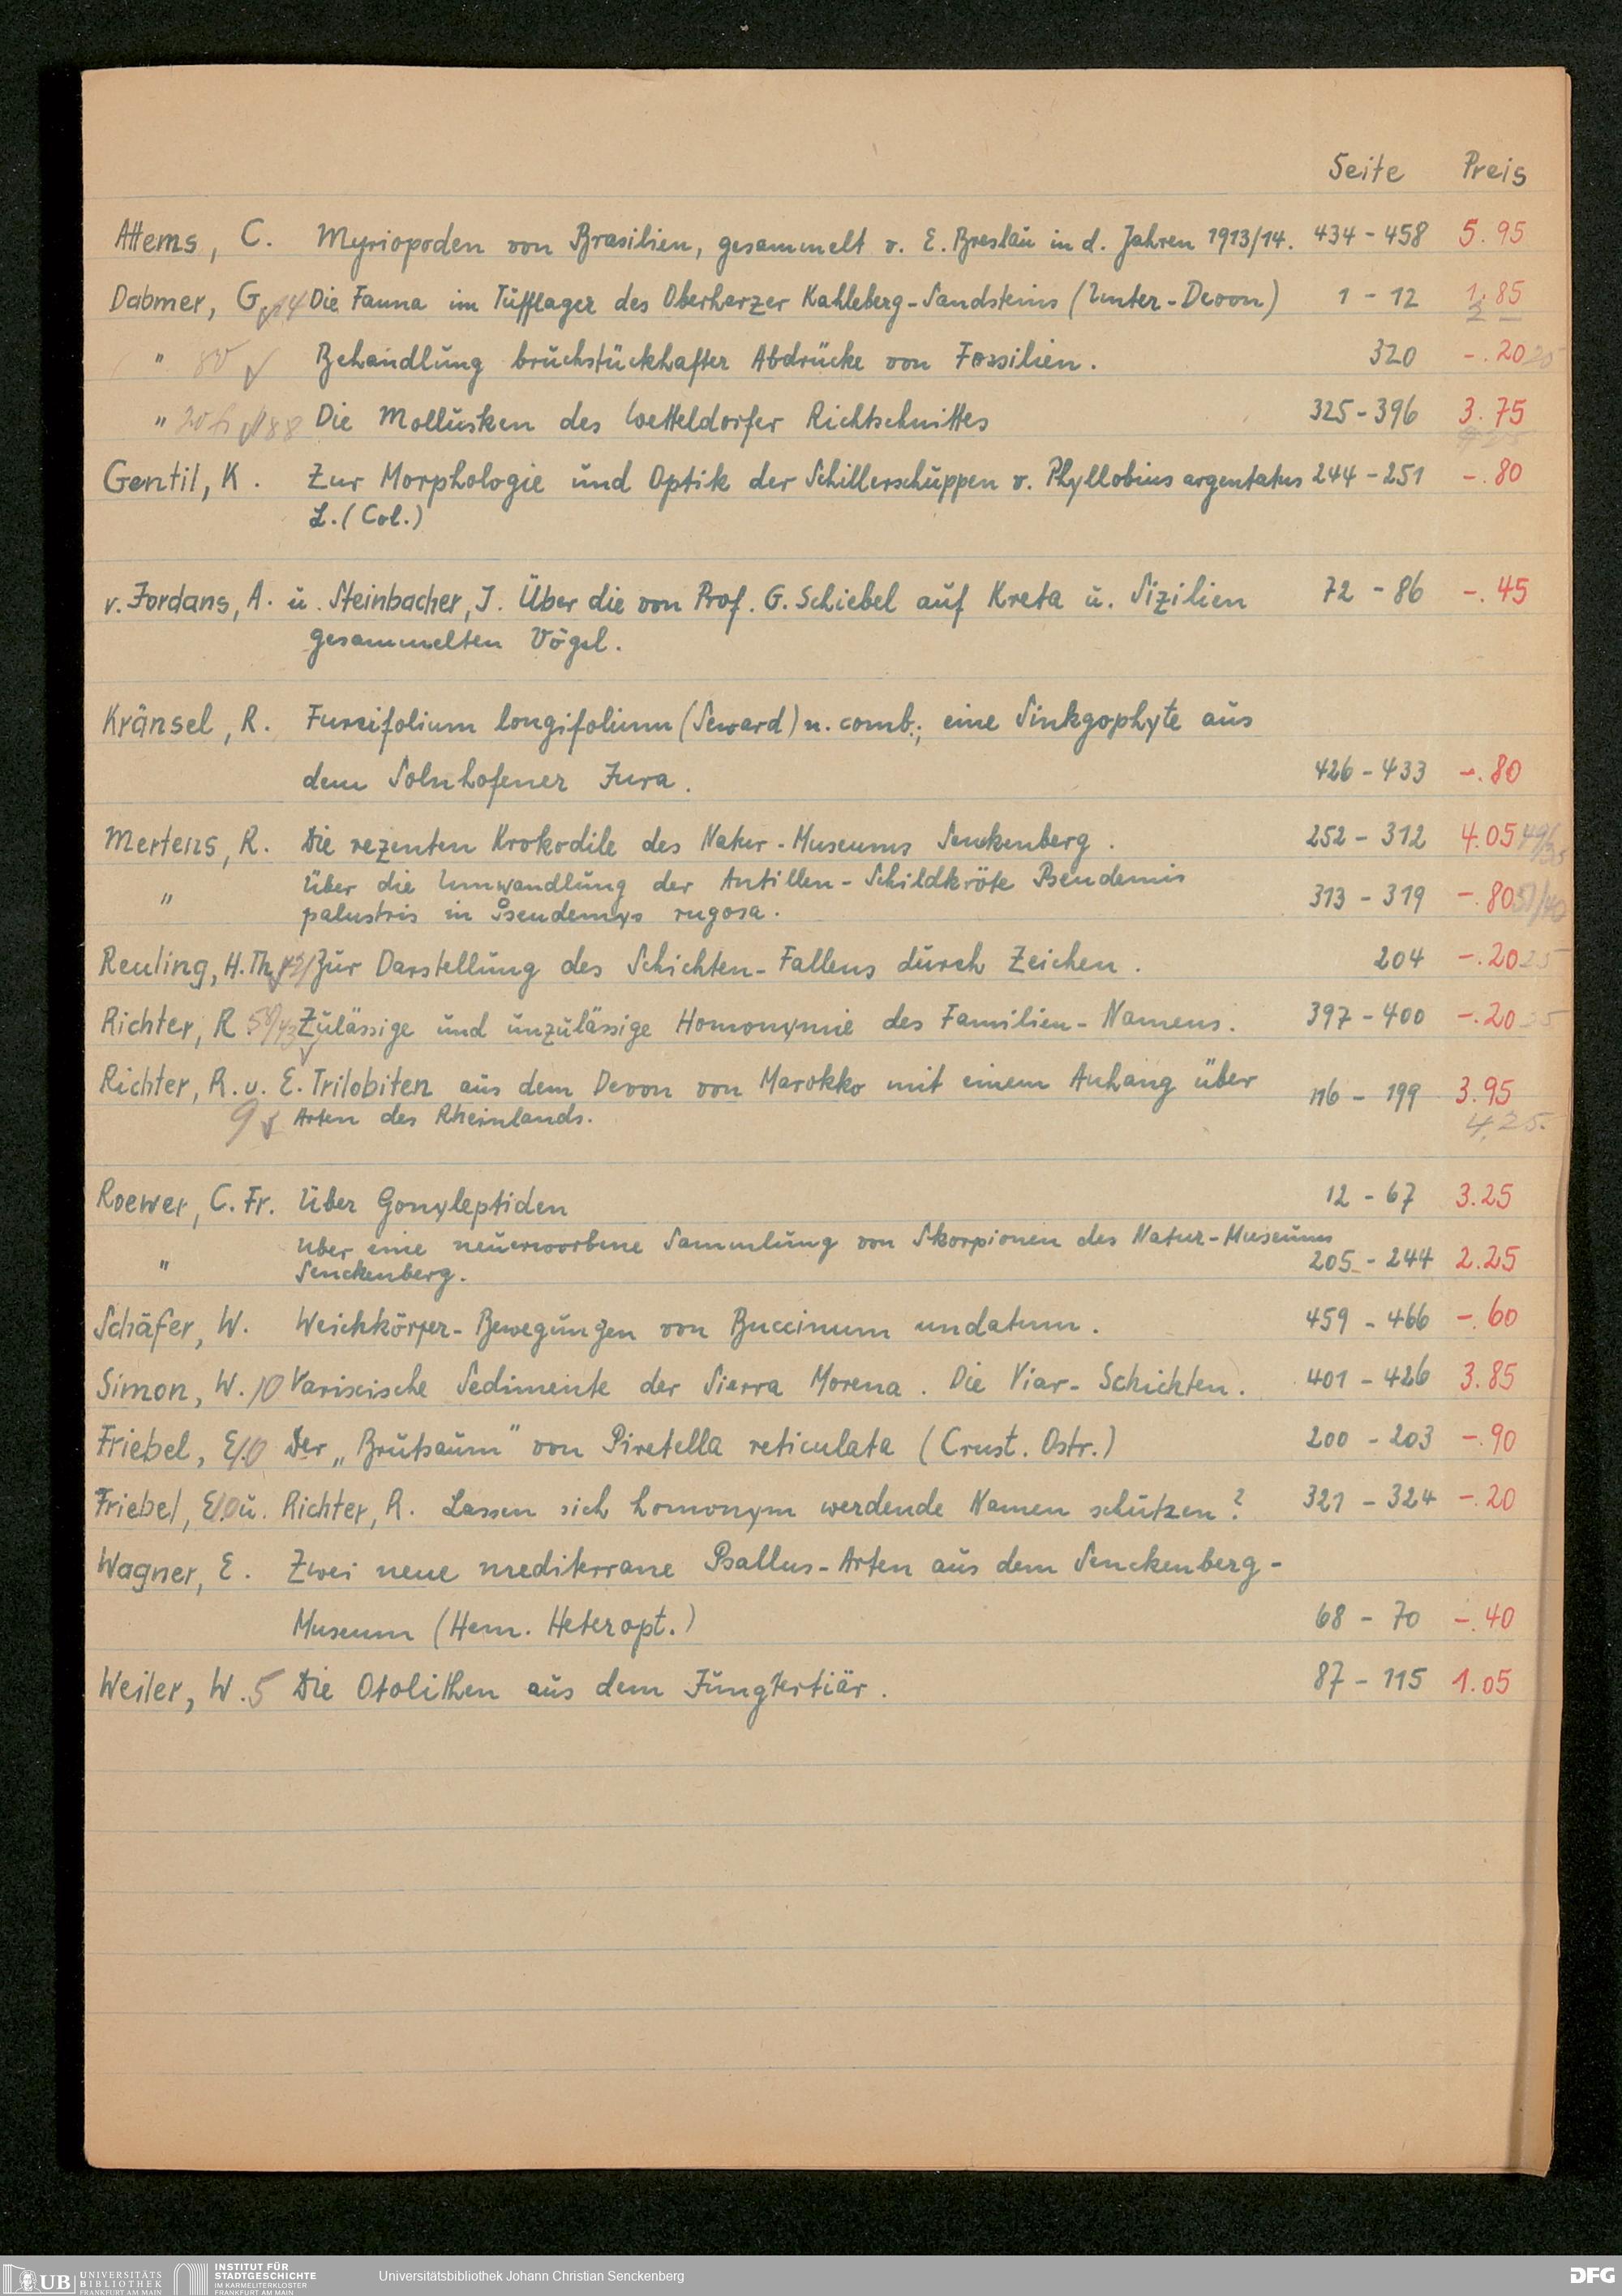 Seite Preis
Attems, C. Myriopoden von Brasilien, gesammelt v. E. Breslau in d. Jahren 1913/14. 434-458 5.95
Dahmer, G. 14 Die Fauna im Tüfflager des Oberharzer Kahleberg-Sandsteins (Unter-Devon) 1-12 1.85
" 80 Behandlung bruchstückhafter Abdrücke von Fossilien. 320 -.20 25
" Die Mollusken des Wetteldorfer Richtschnittes 325-396 3.75
Gentil, K. Zur Morphologie und Optik der Schillerschuppen v. Phyllobius argentatus 244-251 -.80
L. (Col.)
v. Jordans, A. u. Steinbacher, J. Über die von Prof. G. Schiebel auf Kreta u. Sizilien 72-86 -.45
gesammelten Vögel.
Kränsel, R. Furcifolium longifolium (Seward) n. comb.; eine Sinkgophyte aus
dem Solnhofener Jura. 426-433 -.80
Mertens, R. Die rezenten Krokodile des Natur-Museums Senckenberg. 252-312 4.05
Über die Umwandlung der Antillen-Schildkröte Pseudemis
" palustris in Pseudemys rugosa. 313-319 -.80
Reuling, H. Th. Zur Darstellung des Schichten-Fallens durch Zeichen. 204 -.20 25
Richter, R. Zulässige und unzulässige Homonymie des Familien-Namens. 397-400 -.20 25
Richter, R. u. E. Trilobiten aus dem Devon von Marokko mit einem Anhang über 116-199 3.95
9 Arten des Rheinlands. 4,25.
Roewer, C. Fr. Über Gonyleptiden 12-67 3.25
Über eine neuerworbene Sammlung von Skorpionen des Natur-Museums
" Senckenberg. 205-244 2.25
Schäfer, W. Weichkörper-Bewegungen von Buccinum undatum. 459-466 -.60
Simon, W. 10 Variscische Sedimente der Sierra Morena. Die Viar-Schichten. 401-426 3.85
Friebel, E. 10 Der "Brutsaum" von Piretella reticulata (Crust. Ostr.) 200-203 -.90
Friebel, E. 10 u. Richter, R. Lassen sich homonym werdende Namen schützen? 321-324 -.20
Wagner, E. Zwei neue mediterrane Psallus-Arten aus dem Senckenberg-
Museum (Hem. Heteropt.) 68-70 -.40
Weiler, W. 5 Die Otolithen aus dem Jungtertiär. 87-115 1.05
UB UNIVERSITÄTS BIBLIOTHEK FRANKFURT AM MAIN
INSTITUT FÜR STADTGESCHICHTE IM KARMELITERKLOSTER FRANKFURT AM MAIN
Universitätsbibliothek Johann Christian Senckenberg
DFG